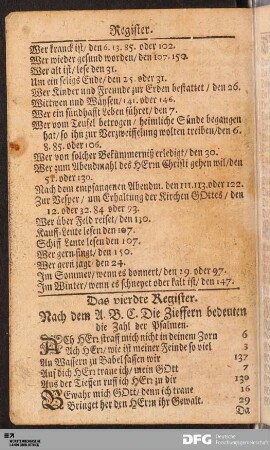 Register.
Wer kranck ist/ den 6. 13. 85. oder 102.
Wer wieder gesund worden/ den 107. 150.
Wer alt ist/ lese den 31.
Um ein seligs Ende/ den 25. oder 31.
Wer Kinder und Freunde zur Erden bestattet / den 26.
Wittwen und Wäysen/ 141. oder 146.
Wer ein sündhafft Leben führet / den 7.
Wer vom Teufel betrogen / heimliche Sünde begangen
hat/ so ihn zur Verzweiffelung wolten treiben/ den 6.
8. 85. oder 106.
Wer von solcher Bekümmerniß erledigt/ den 30.
Wer zum Abendmahl des HErrn Christi gehen wil/ den
51. oder 130.
Nach dem empfangenen Abendm. den 111. 113. oder 122.
Zur Vesper / um Erhaltung der Kirchen GOttes / den
12. oder 32. 84. oder 93.
Wer über Feld reiset/ den 130.
Kauff-Leute lesen den 107.
Schiff Leute lesen den 107.
Wer gern singt/ den 150.
Wer gern jagt/ den 24.
Im Sommer/ wenn es donnert/ den 29. oder 97.
Im Winter/ wenn es schneyet oder kalt ist/ den 147.
Das vierdte Register.
Nach dem A. B. C. Die Zieffern bedeuten
die Zahl der Psalmen.
ACh HErr straff mich nicht in deinem Zorn 6
Ach HErr/ wie ist meiner Feinde so viel 3
An Wassern zu Babel sassen wir 137
Auf dich HErr traue ich/ mein GOtt 7
Aus der Tieffen ruff ich HErr zu dir 130
Bewahr mich GOtt/ denn ich traue 16
Bringet her den HErrn ihr Gewalt. 29
Da
DFG